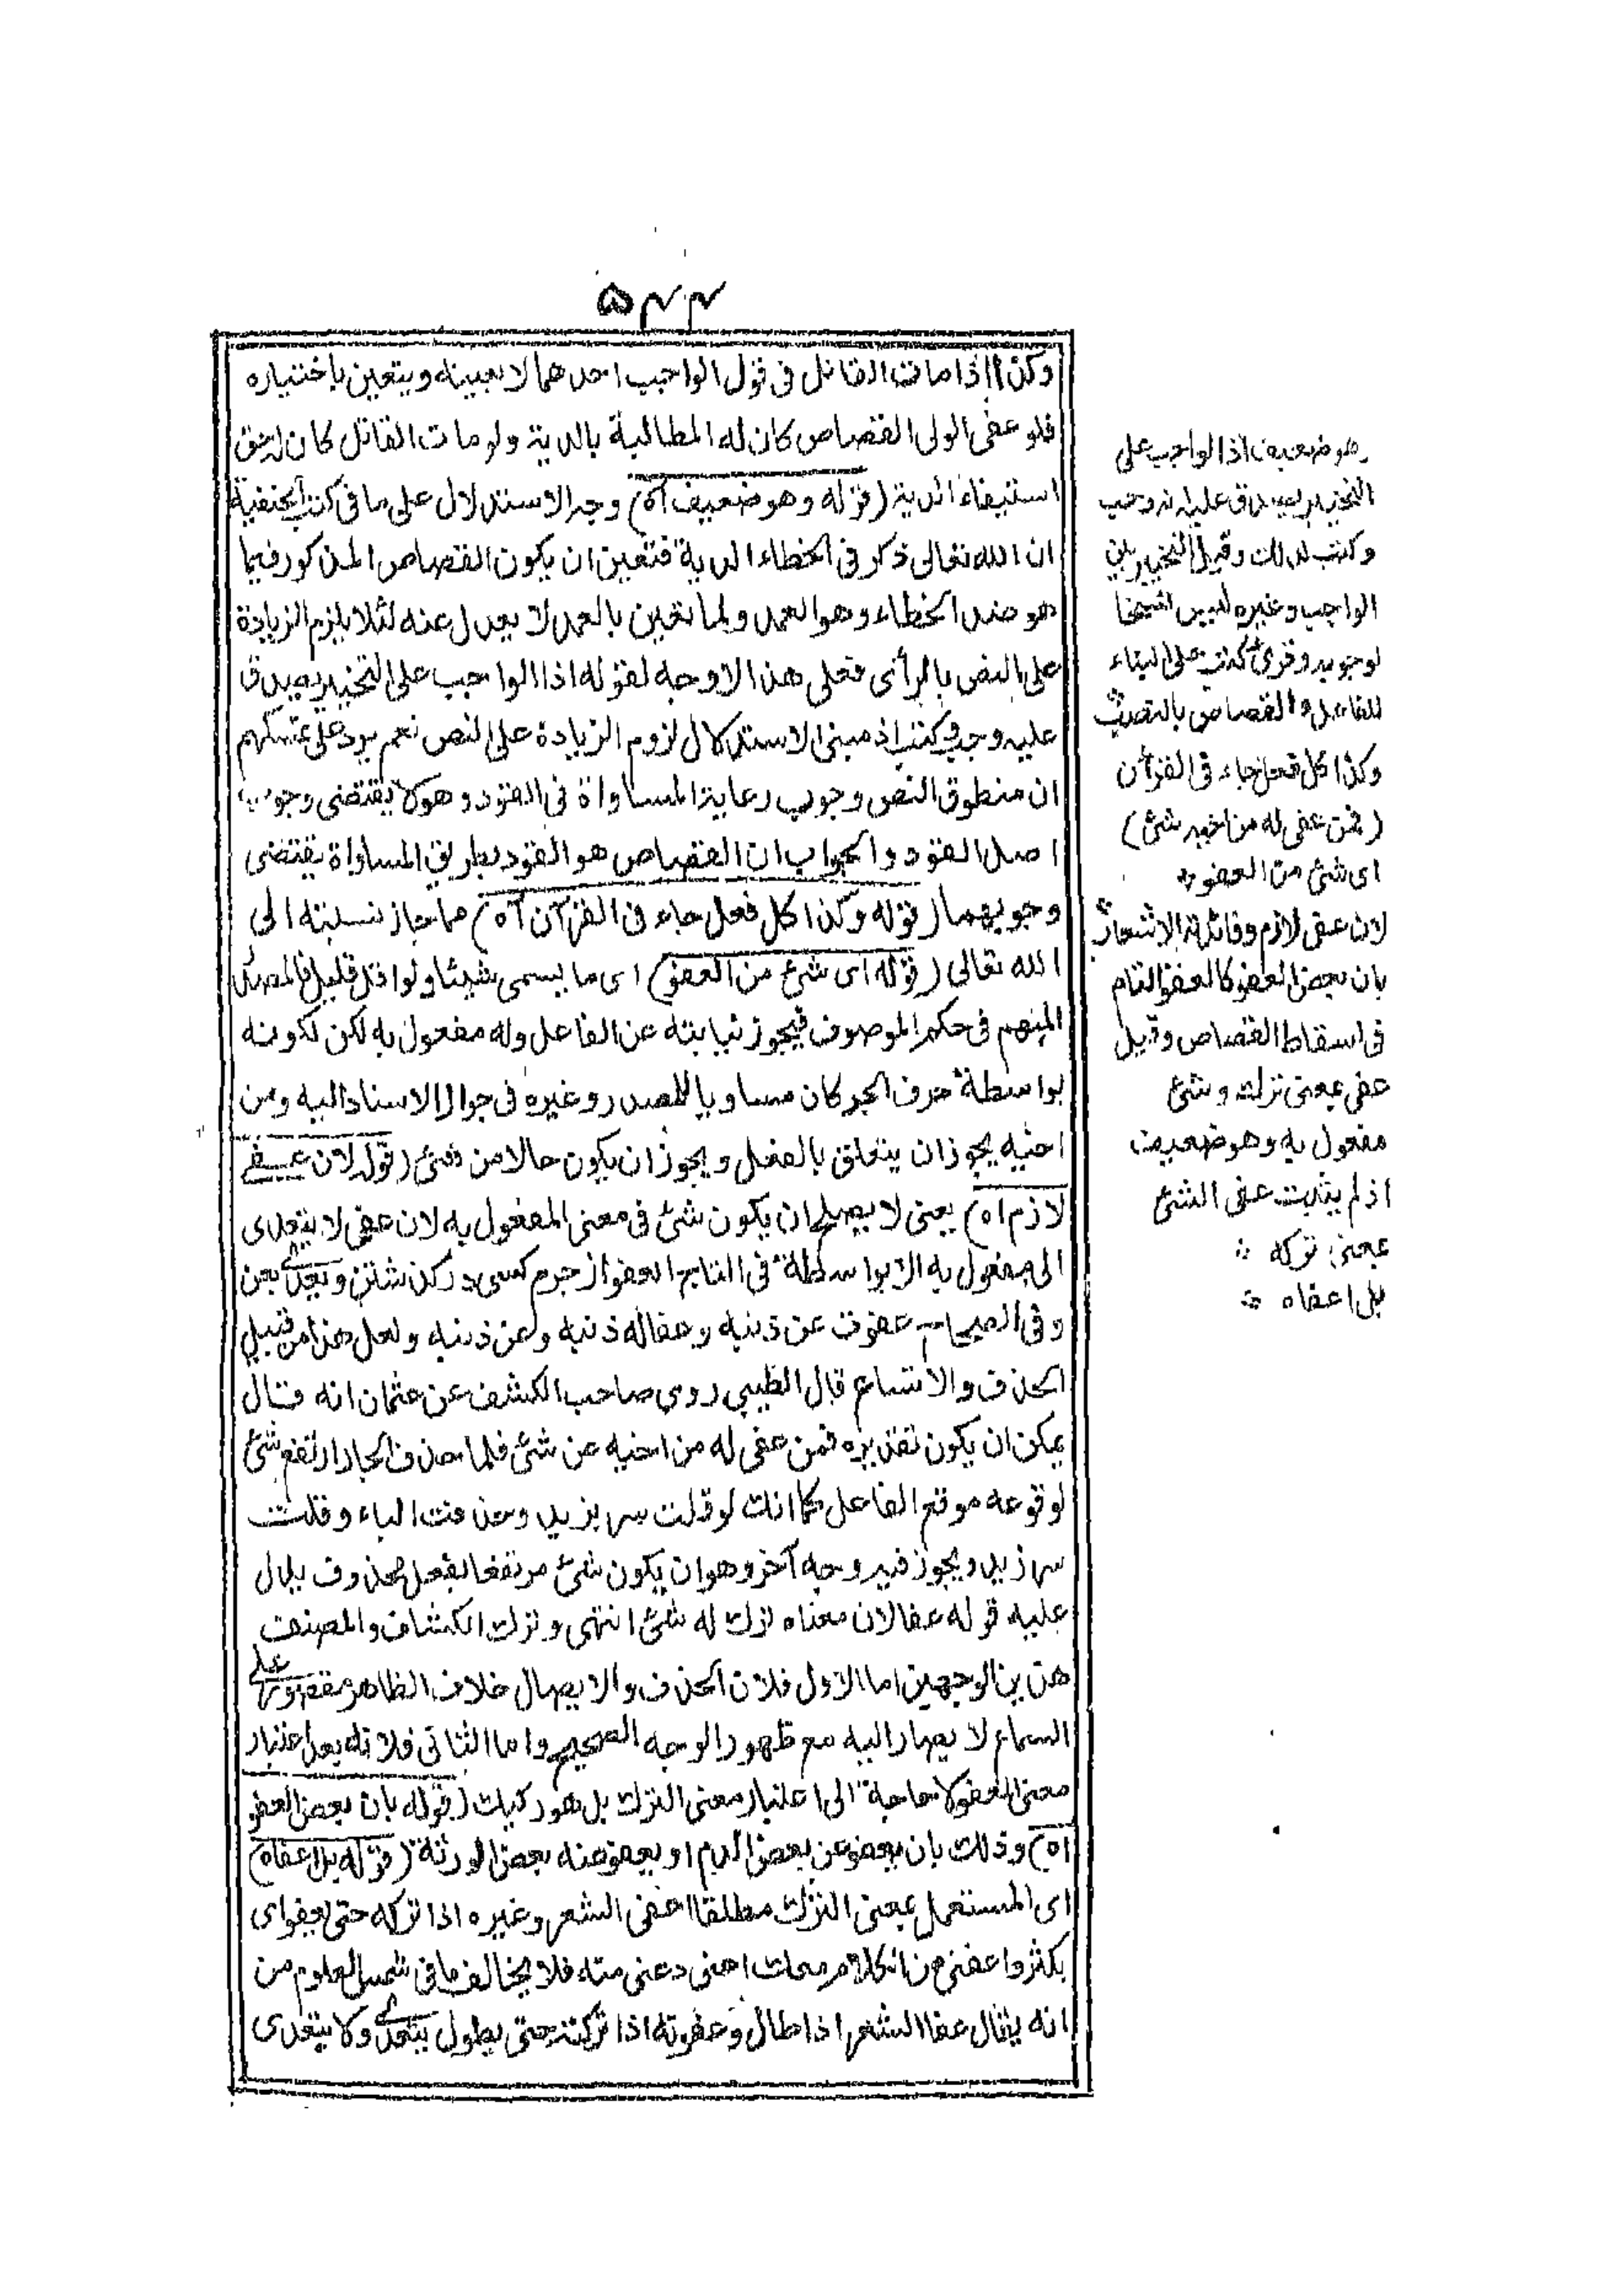 ۵۲۲
وكذا اذا مات القاتل فى قول الواجب احدهما لا بعينه ويتعين باختياره
فلو عفى الولى القصاص كان له المطالبة بالدية ولو مات القاتل كان له حق
استيفاء الدية (قوله وهو ضعيف اه) وجه الاستدلال على ما فى كتب الحنفية
ان الله تعالى ذكر فى الخطاء الدية فتعين ان يكون القصاص المذكور فيما
هو ضد الخطاء وهو العمد ولما تعين بالعمد لا يعدل عنه لئلا يلزم الزيادة
على النص بالرأى فعلى هذا لا وجه لقوله اذ الواجب على التخيير يصدق
عليه وجب وكتب اذ مبنى الاستدلال لزوم الزيادة على النص نعم يرد على تمسكهم
ان منطوق النص وجوب رعاية المساواة فى القود وهو لا يقتضى وجوب
اصل القود والجواب ان القصاص هو القود بطريق المساواة يقتضى
وجوبهما (قوله وكذا كل فعل جاء فى القرآن آه) مما جاز نسبته الى
الله تعالى (قوله اى شئ من العفو) اى ما يسمى شيئا ولو اقل قليل فالمصدر
المبهم فى حكم الموصوف فيجوز نيابته عن الفاعل وله مفعول به لكن لكونه
بواسطة حرف الجر كان مساويا للمصدر وغيره فى جواز الاسناد اليه ومن
اخيه يجوز ان يتعلق بالفعل ويجوز ان يكون حالا من شئ (قوله لان عفى
لازم اه) يعنى لا يصلح ان يكون شئ فى معنى المفعول به لان عفى لا يتعدى
الى مفعول به الا بواسطة فى التاج العفو از جرم كسى در كذشتن ويعدى بعن
وفى الصحاح عفوت عن ذنبه وعفا له ذنبه وعن ذنبه ولعل هذا من قبيل
الحذف والاتساع قال الطيبى روى صاحب الكشف عن عثمان انه قال
يمكن ان يكون تقديره فمن عفى له من اخيه عن شئ فلما حذف الجار ارتفع شئ
لوقوعه موقع الفاعل كما انك لو قلت سر بزيد وحذفت الباء وقلت
سر زيد ويجوز فيه وجه آخر وهو ان يكون شئ مرتفعا بفعل محذوف يدل
عليه قوله عفا لان معناه ترك له شئ انتهى وترك الكشاف والمصنف
هذين الوجهين اما الاول فلان الحذف والايصال خلاف الظاهر مقصور على
السماع لا يصار اليه مع ظهور الوجه الصحيح واما الثانى فلانه بعد اعتبار
معنى العفو لا حاجة الى اعتبار معنى الترك بل هو ركيك (قوله بان بعض العفو
اه) وذلك بان يعفو عن بعض الدم او يعفو عنه بعض الورثة (قوله بل اعفاه)
اى المستعمل بمعنى الترك مطلقا اعفى الشعر وغيره اذا تركه حتى يعفو اى
يكثر واعفنى من الكلام معك اى دعنى منه فلا يخالف ما فى شمس العلوم من
انه يقال عفا الشعر اذا طال وعفوته اذا تركته حتى يطول يتعدى ولا يتعدى
وهو ضعيف اذ الواجب على
التخيير يصدق عليه انه وجب
وكتب لذلك وقيل التخيير بين
الواجب وغيره ليس نسخا
لوجوبه وقرئ كتب على البناء
للفاعل والقصاص بالنصب
وكذا كل فعل جاء فى القرآن
(فمن عفى له من اخيه شئ)
اى شئ من العفو
لان عفى لازم وفائدته الاشعار
بان بعض العفو كالعفو التام
فى اسقاط القصاص وقيل
عفى بمعنى ترك وشئ
مفعول به وهو ضعيف
اذ لم يثبت عفى الشئ
بمعنى تركه
بل اعفاه